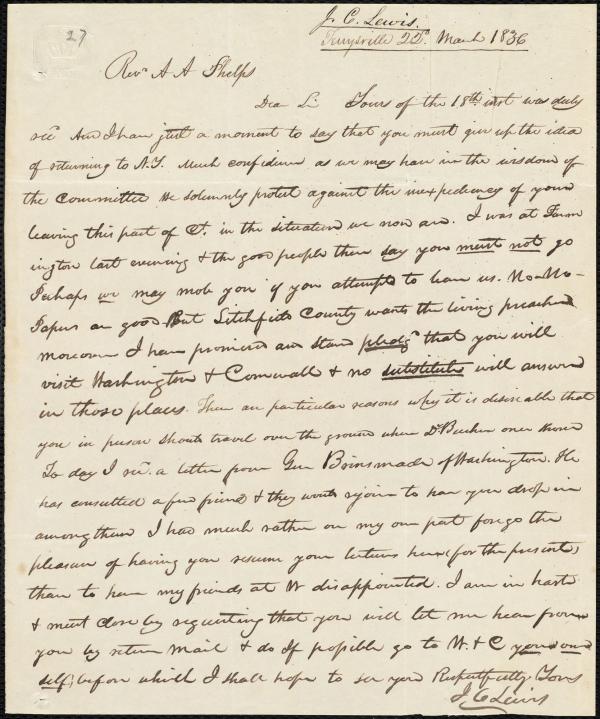 27
J. C. Lewis.
Terrysville 22d. March 1836
Revd. A A Phelps
Dea Sir Yours of the 18th inst was duly
recd And I have just a moment to say that you must give up the idea
of returning to N.Y. Much confidence as we may have in the wisdom of
the Committee We solemnly protest against the inexpediency of your
leaving this part of Ct. in the situation we now are. I was at Farm
ington last evening & the good people there say you must not go
Perhaps we may mob you if you attempt to leave us. No-No-
Papers are good But Litchfield County wants the living preacher
moreover I have promised and stand pledgd that you will
visit Washington & Cornwall & no substitute will answer
in those places. There are particular reasons why it is desireable that
you in person should travel over the ground where Dr Beecher once
To day I recd. a letter from Gen Brinsmade of Washington. He
has consulted a few friends & they would rejoice to have you drop in
among them I had much rather on my own part forego the
pleasure of having you resume your lectures here (for the present)
than to have my friends at W disappointed. I am in haste
& must close by requesting that you will let me hear from
you by return mail & do If possible go to W. & C your own
self, before which I shall hope to see you Respectfully Yours
J. C Lewis